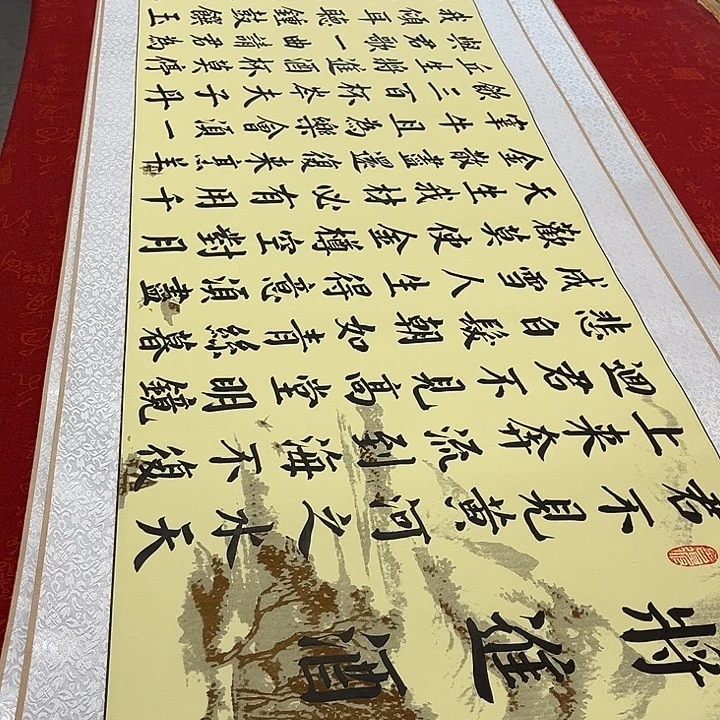 將進酒
君不見黃河之水天
上来奔流到海不復
迴君不見高堂明鏡
悲白髮朝如青絲暮
成雪人生得意須盡
歡莫使金樽空對月
天生我材必有用千
金散盡還復来烹羊
宰牛且為樂會須一
飲三百杯岑夫子丹
丘生將進酒杯莫停
與君歌一曲請君為
我傾耳聽鍾鼓饌玉